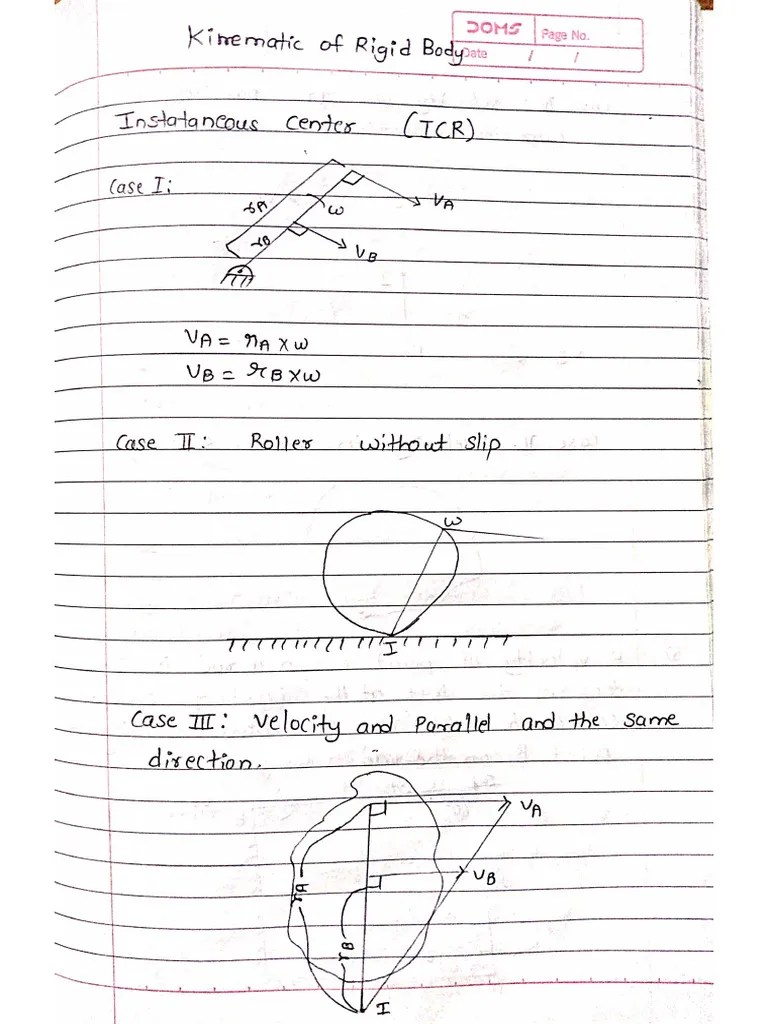 DOMS
Page No.
Date / /
Kinematic of Rigid Body
Instataneous center (ICR)
Case I:
rA
ω
VA
rB
VB
VA = rA × ω
VB = rB × ω
Case II: Roller without slip
ω
I
Case III: Velocity and Parallel and the same
direction.
VA
VB
rA
rB
I